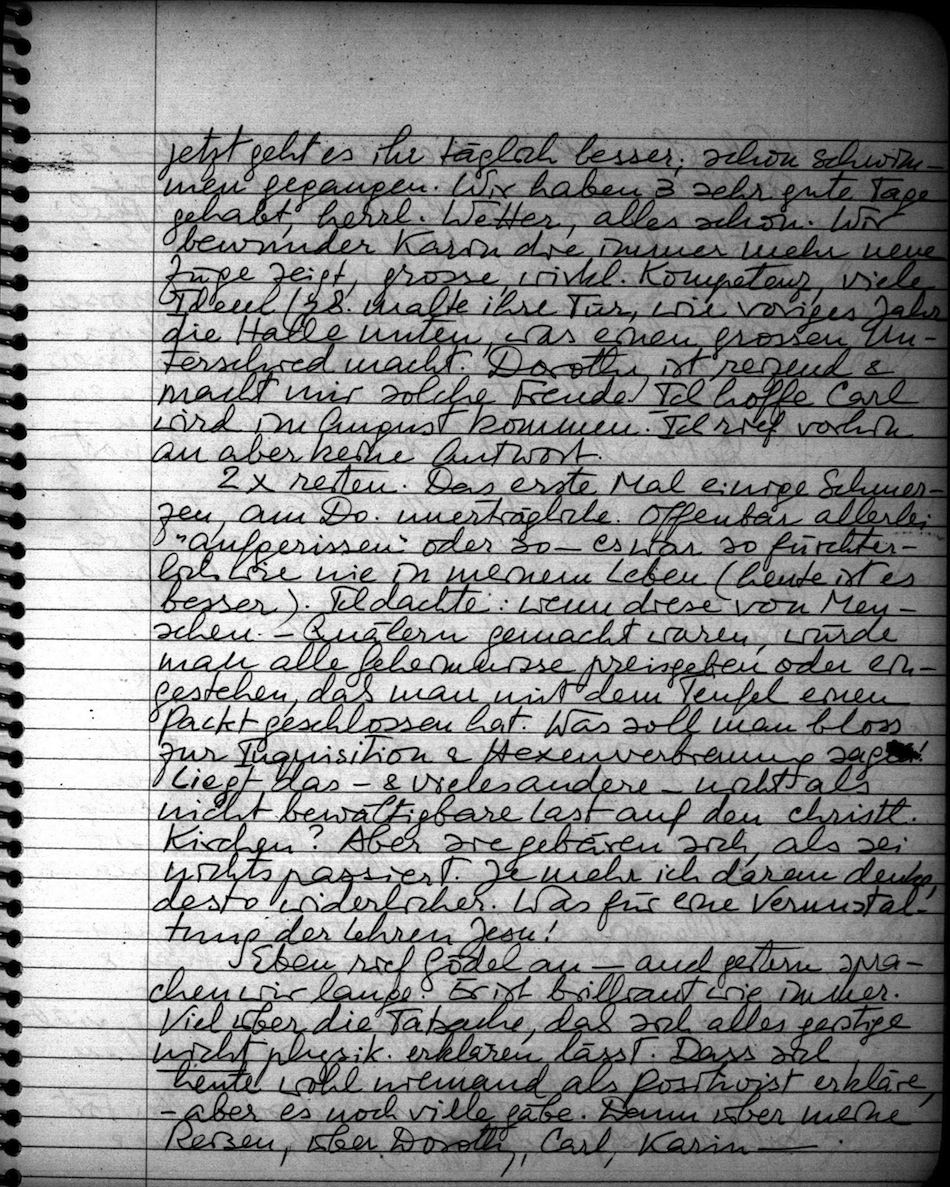 jetzt geht es ihr täglich besser; schon schwim-
men gegangen. Wir haben 3 sehr gute Tage
gehabt, herrl. Wetter, alles schön. Wir
bewunder Karin die immer mehr neue
Züge zeigt, grosse, wirkl. Kompetenz, viele
Ideen malte ihre Tür, wie voriges Jahr
die Halle unten, was einen grossen Un-
terschied macht. Dorothy ist reizend &
macht mir solche Freude! Ich hoffe Carl
wird im August kommen. Ich rief vorhin
an aber keine Antwort.
2 x reiten. Das erste Mal einige Schmer-
zen, am Do. unerträgliche. Offenbar allerlei
"aufgerissen" oder so – es war so fürchter-
lich wie nie in meinem Leben (heute ist es
besser). Ich dachte: wenn diese von Men-
schen – Quälern gemacht waren, würde
man alle Geheimnisse preisgeben oder ein-
gestehen, das man mit dem Teufel einen
Packt geschlossen hat. Was soll man bloss
zur Inquisition & Hexenverbrennung sagen!
Liegt das – & vieles andere – nicht als
nicht bewältigbare Last auf den christl.
Kirchen? Aber sie gebären sich, als sei
nichts passiert. Je mehr ich daran denke,
desto widerlicher. Was für eine Verunstal-
tung der Lehren Jesu!
Eben rief Gödel an – auch gestern spra-
chen wir lange. Er ist brilliant wie immer.
Viel über die Tatsache, das sich alles geistige
nicht physik. erklären lässt. Dass sich
heute wohl niemand als Positivist erkläre,
– aber es noch viele gäbe. Dann über meine
Reisen, über Dorothy, Carl, Karin —.